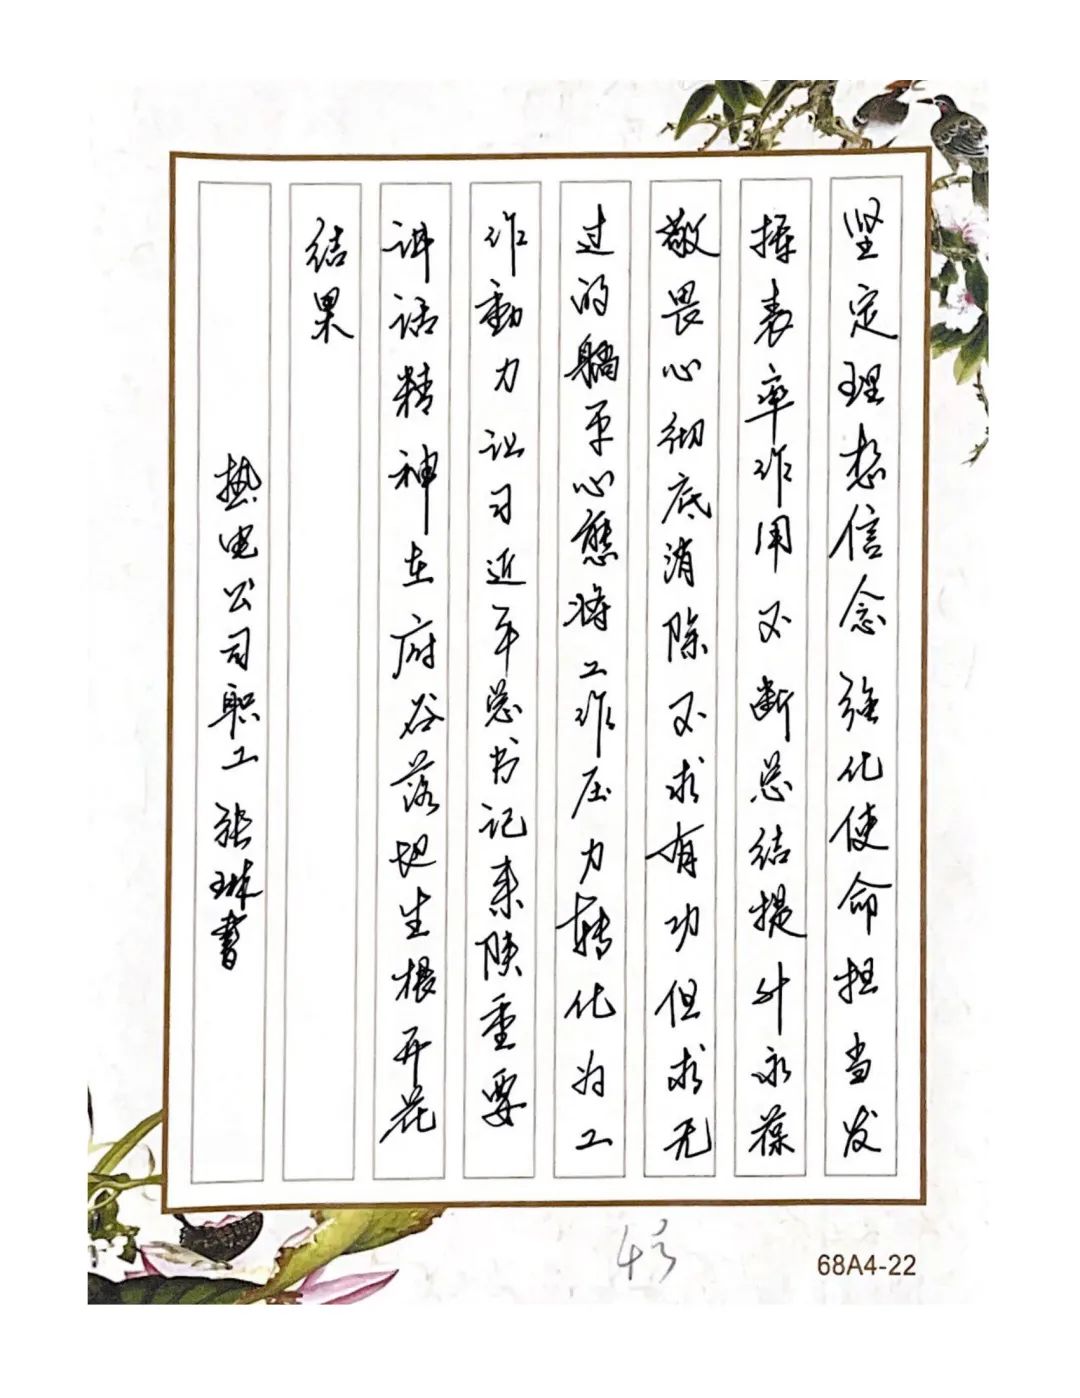 坚定理想信念强化使命担当发
挥表率作用不断总结提升永葆
敬畏心彻底消除不求有功但求无
过的躺平心態将工作压力转化为工
作動力让习近平总书记来陕重要
讲话精神在府谷落地生根开花
结果
热电公司职工张琳書
68A4-22